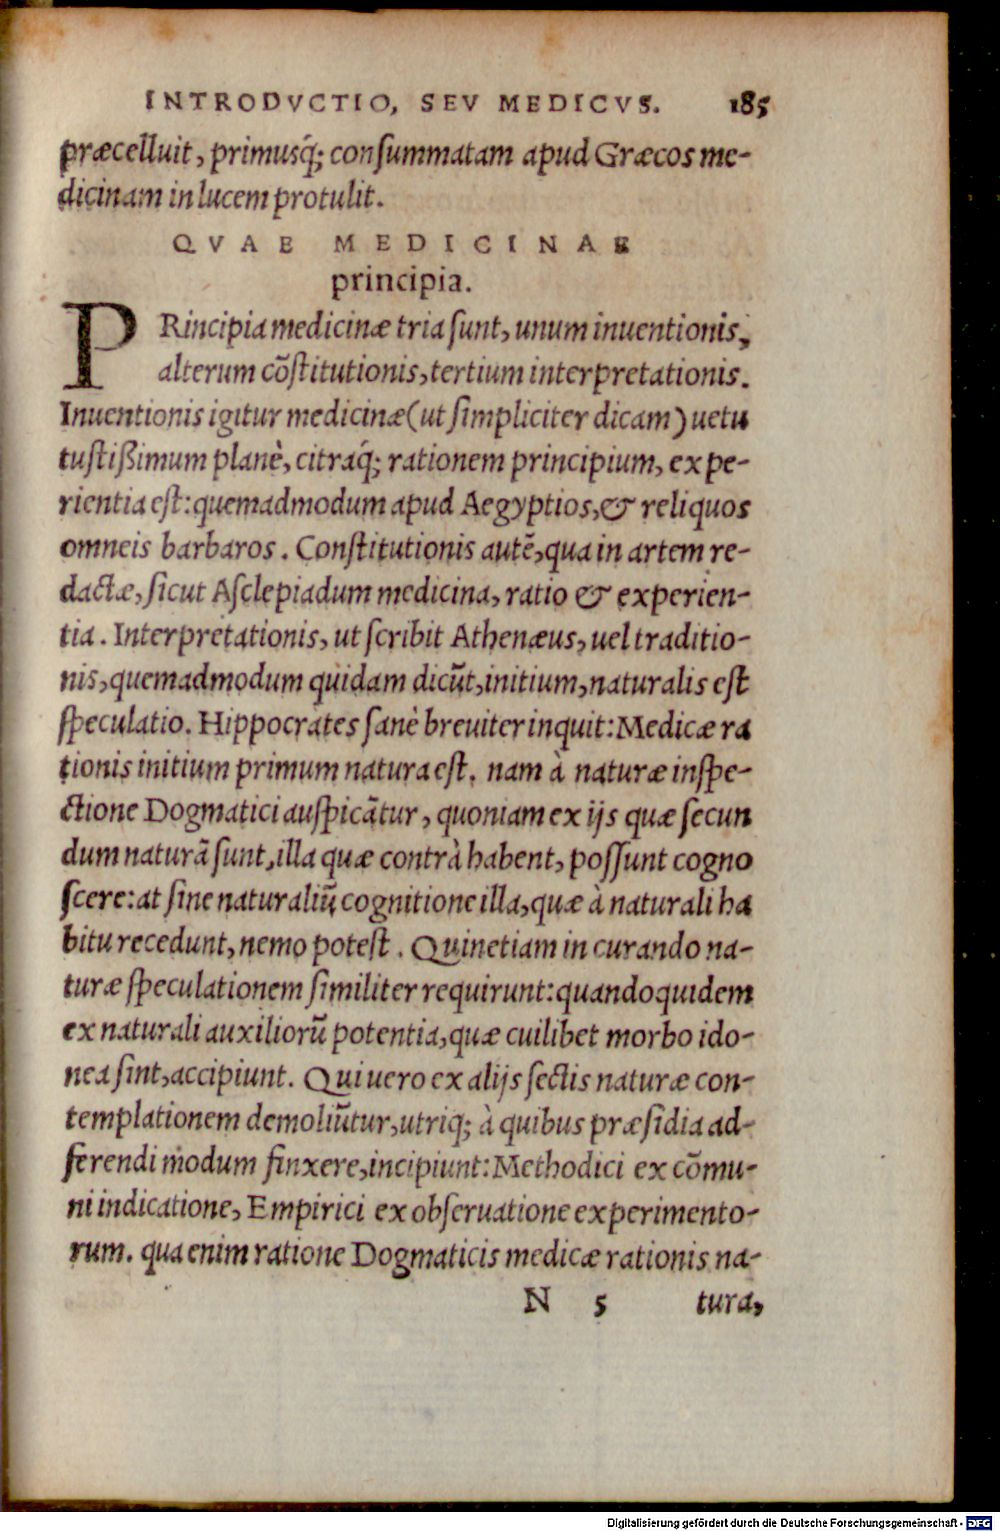 INTRODVCTIO, SEV MEDICVS. 185
præcelluit, primusq́; consummatam apud Græcos me-
dicinam in lucem protulit.
QVAE MEDICINAE
principia.
PRincipia medicinæ tria sunt, unum inuentionis,
alterum cõstitutionis, tertium interpretationis.
Inuentionis igitur medicinæ (ut simpliciter dicam) uetu
tustißimum planè, citraq́; rationem principium, expe-
rientia est: quemadmodum apud Aegyptios, & reliquos
omneis barbaros. Constitutionis autẽ, qua in artem re-
dactæ, sicut Asclepiadum medicina, ratio & experien-
tia. Interpretationis, ut scribit Athenæus, uel traditio-
nis, quemadmodum quidam dicũt, initium, naturalis est
speculatio. Hippocrates sanè breuiter inquit: Medicæ ra
tionis initium primum natura est. nam à naturæ inspe-
ctione Dogmatici auspicãtur, quoniam ex ijs quæ secun
dum naturã sunt, illa quæ contrà habent, possunt cogno
scere: at sine naturaliũ cognitione illa, quæ à naturali ha
bitu recedunt, nemo potest. Quinetiam in curando na-
turæ speculationem similiter requirunt: quandoquidem
ex naturali auxiliorũ potentia, quæ cuilibet morbo ido-
nea sint, accipiunt. Qui uero ex alijs sectis naturæ con-
templationem demoliũtur, utriq; à quibus præsidia ad-
ferendi modum finxere, incipiunt: Methodici ex cõmu-
ni indicatione, Empirici ex obseruatione experimento-
rum. qua enim ratione Dogmaticis medicæ rationis na-
N 5 tura,
Digitalisierung gefördert durch die Deutsche Forschungsgemeinschaft - DFG